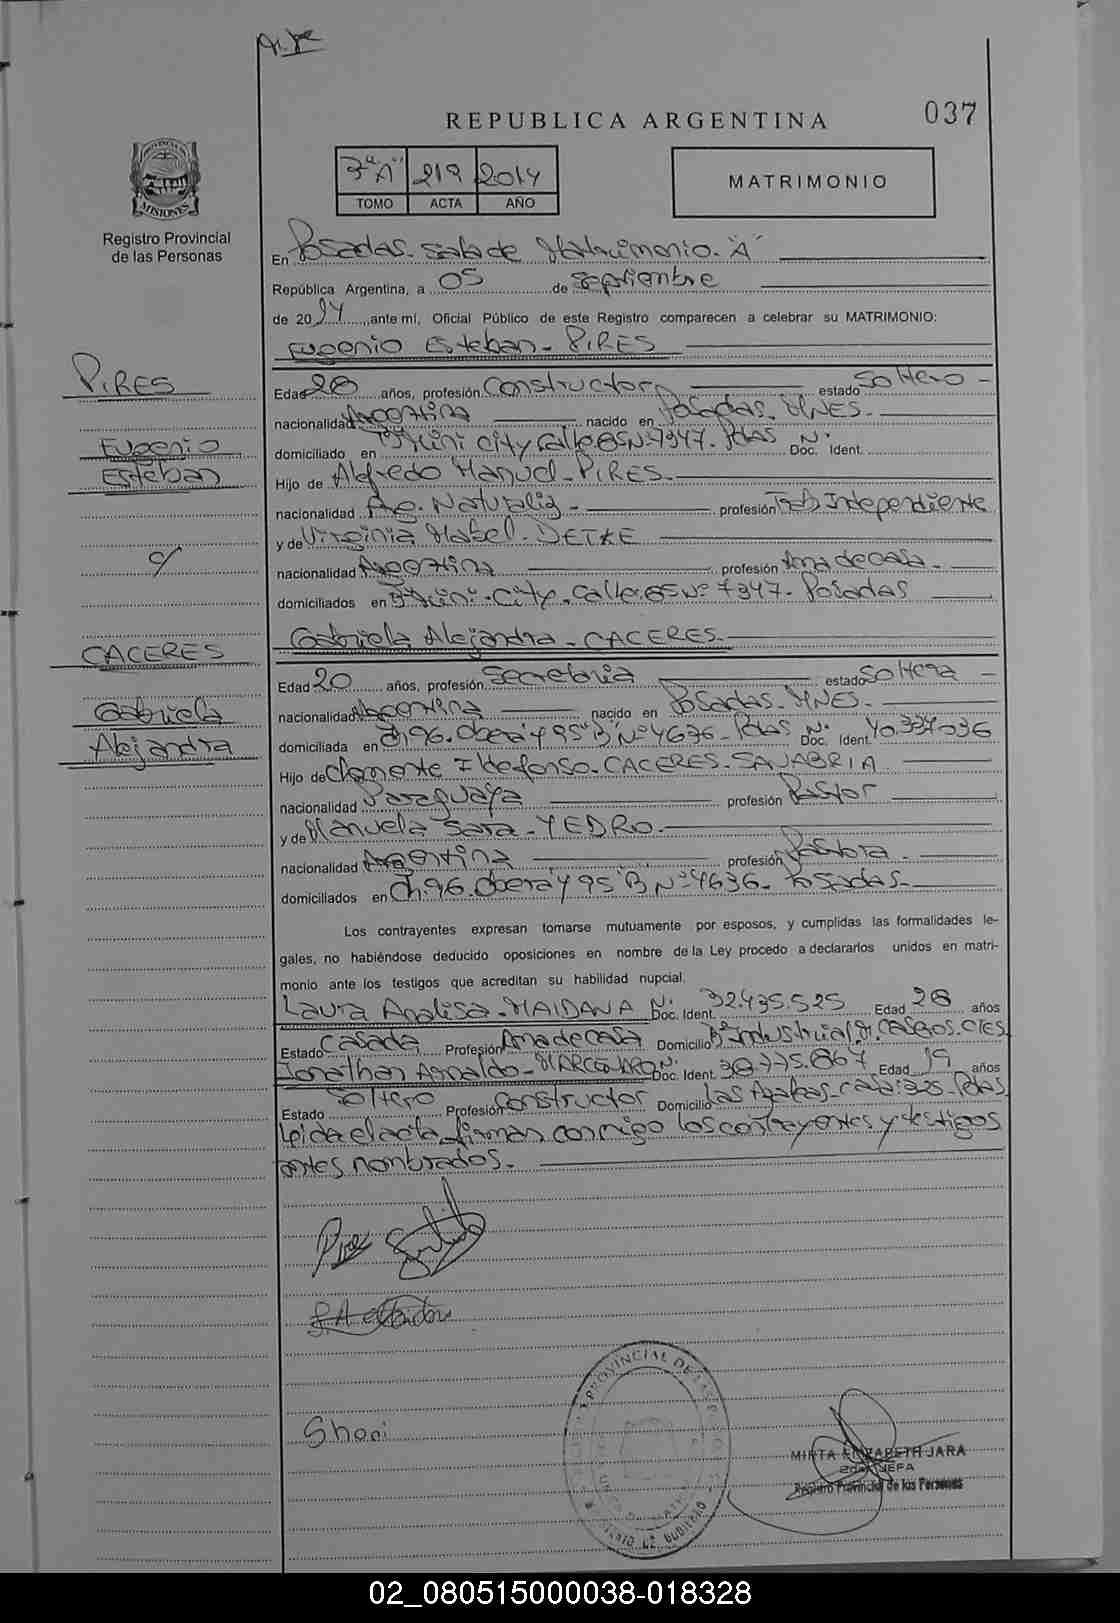 037
REPUBLICA ARGENTINA
3ª "A" 219 2014
TOMO ACTA AÑO
MATRIMONIO
PROVINCIA DE
MISIONES
Registro Provincial
de las Personas
En Posadas. Sala de Matrimonio. "A"
República Argentina, a 05 de Septiembre
de 2014, ante mí, Oficial Público de este Registro comparecen a celebrar su MATRIMONIO:
Eugenio Esteban - PIRES
PIRES
Eugenio
Esteban
c/
CACERES
Gabriela
Alejandra
Edad 20 años, profesión Constructor estado Soltero -
nacionalidad Argentina nacido en Posadas. MNES.
domiciliado en City Calle 85 Nº 7347. Pdas Doc. Ident. Nº
Hijo de Alfredo Manuel - PIRES.
nacionalidad Arg. Naturaliz - profesión Trab Independiente
y de Virginia Mabel - DETKE
nacionalidad Argentina profesión Ama de casa -
domiciliados en City. Calle 85 Nº 7347 - Posadas
Gabriela Alejandra - CACERES.
Edad 20 años, profesión Secretaria estado Soltera -
nacionalidad Argentina nacido en Posadas. MNES.
domiciliada en Ch. 96. Oberá y 95 "B" Nº 4636 - Pdas Doc. Ident. Nº 40.337.036
Hijo de Clemente Ildefonso - CACERES - SANABRIA
nacionalidad Paraguaya profesión Pastor
y de Manuela Sara - YEDRO.
nacionalidad Argentina profesión Pastora -
domiciliados en Ch. 96. Oberá y 95 "B" Nº 4636 - Posadas -
Los contrayentes expresan tomarse mutuamente por esposos, y cumplidas las formalidades le-
gales, no habiéndose deducido oposiciones en nombre de la Ley procedo a declararlos unidos en matri-
monio ante los testigos que acreditan su habilidad nupcial.
Laura Analisa - MAIDANA Doc. Ident. Nº 32.435.525 Edad 28 años
Estado Casada Profesión Ama de casa Domicilio Bº Industrial CTES
Jonathan Arnaldo - Doc. Ident. Nº 38.775.867 Edad 19 años
Estado Soltero Profesión Constructor Domicilio Las Azaleas - Pdas
Leida el acta, firman conmigo los contrayentes y testigos
antes nombrados.
Pires
Shoni
MIRTA ELIZABETH JARA
2da. JEFA
Registro Provincial de las Personas
02_080515000038-018328